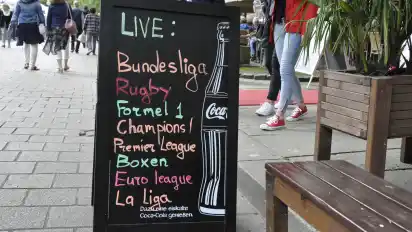 LIVE:
Bundesliga
Rugby
Formel 1
Champions l
Premier League
Boxen
Euro league
La Liga
Dazu eine eiskalte
Coca-Cola genießen
Coca